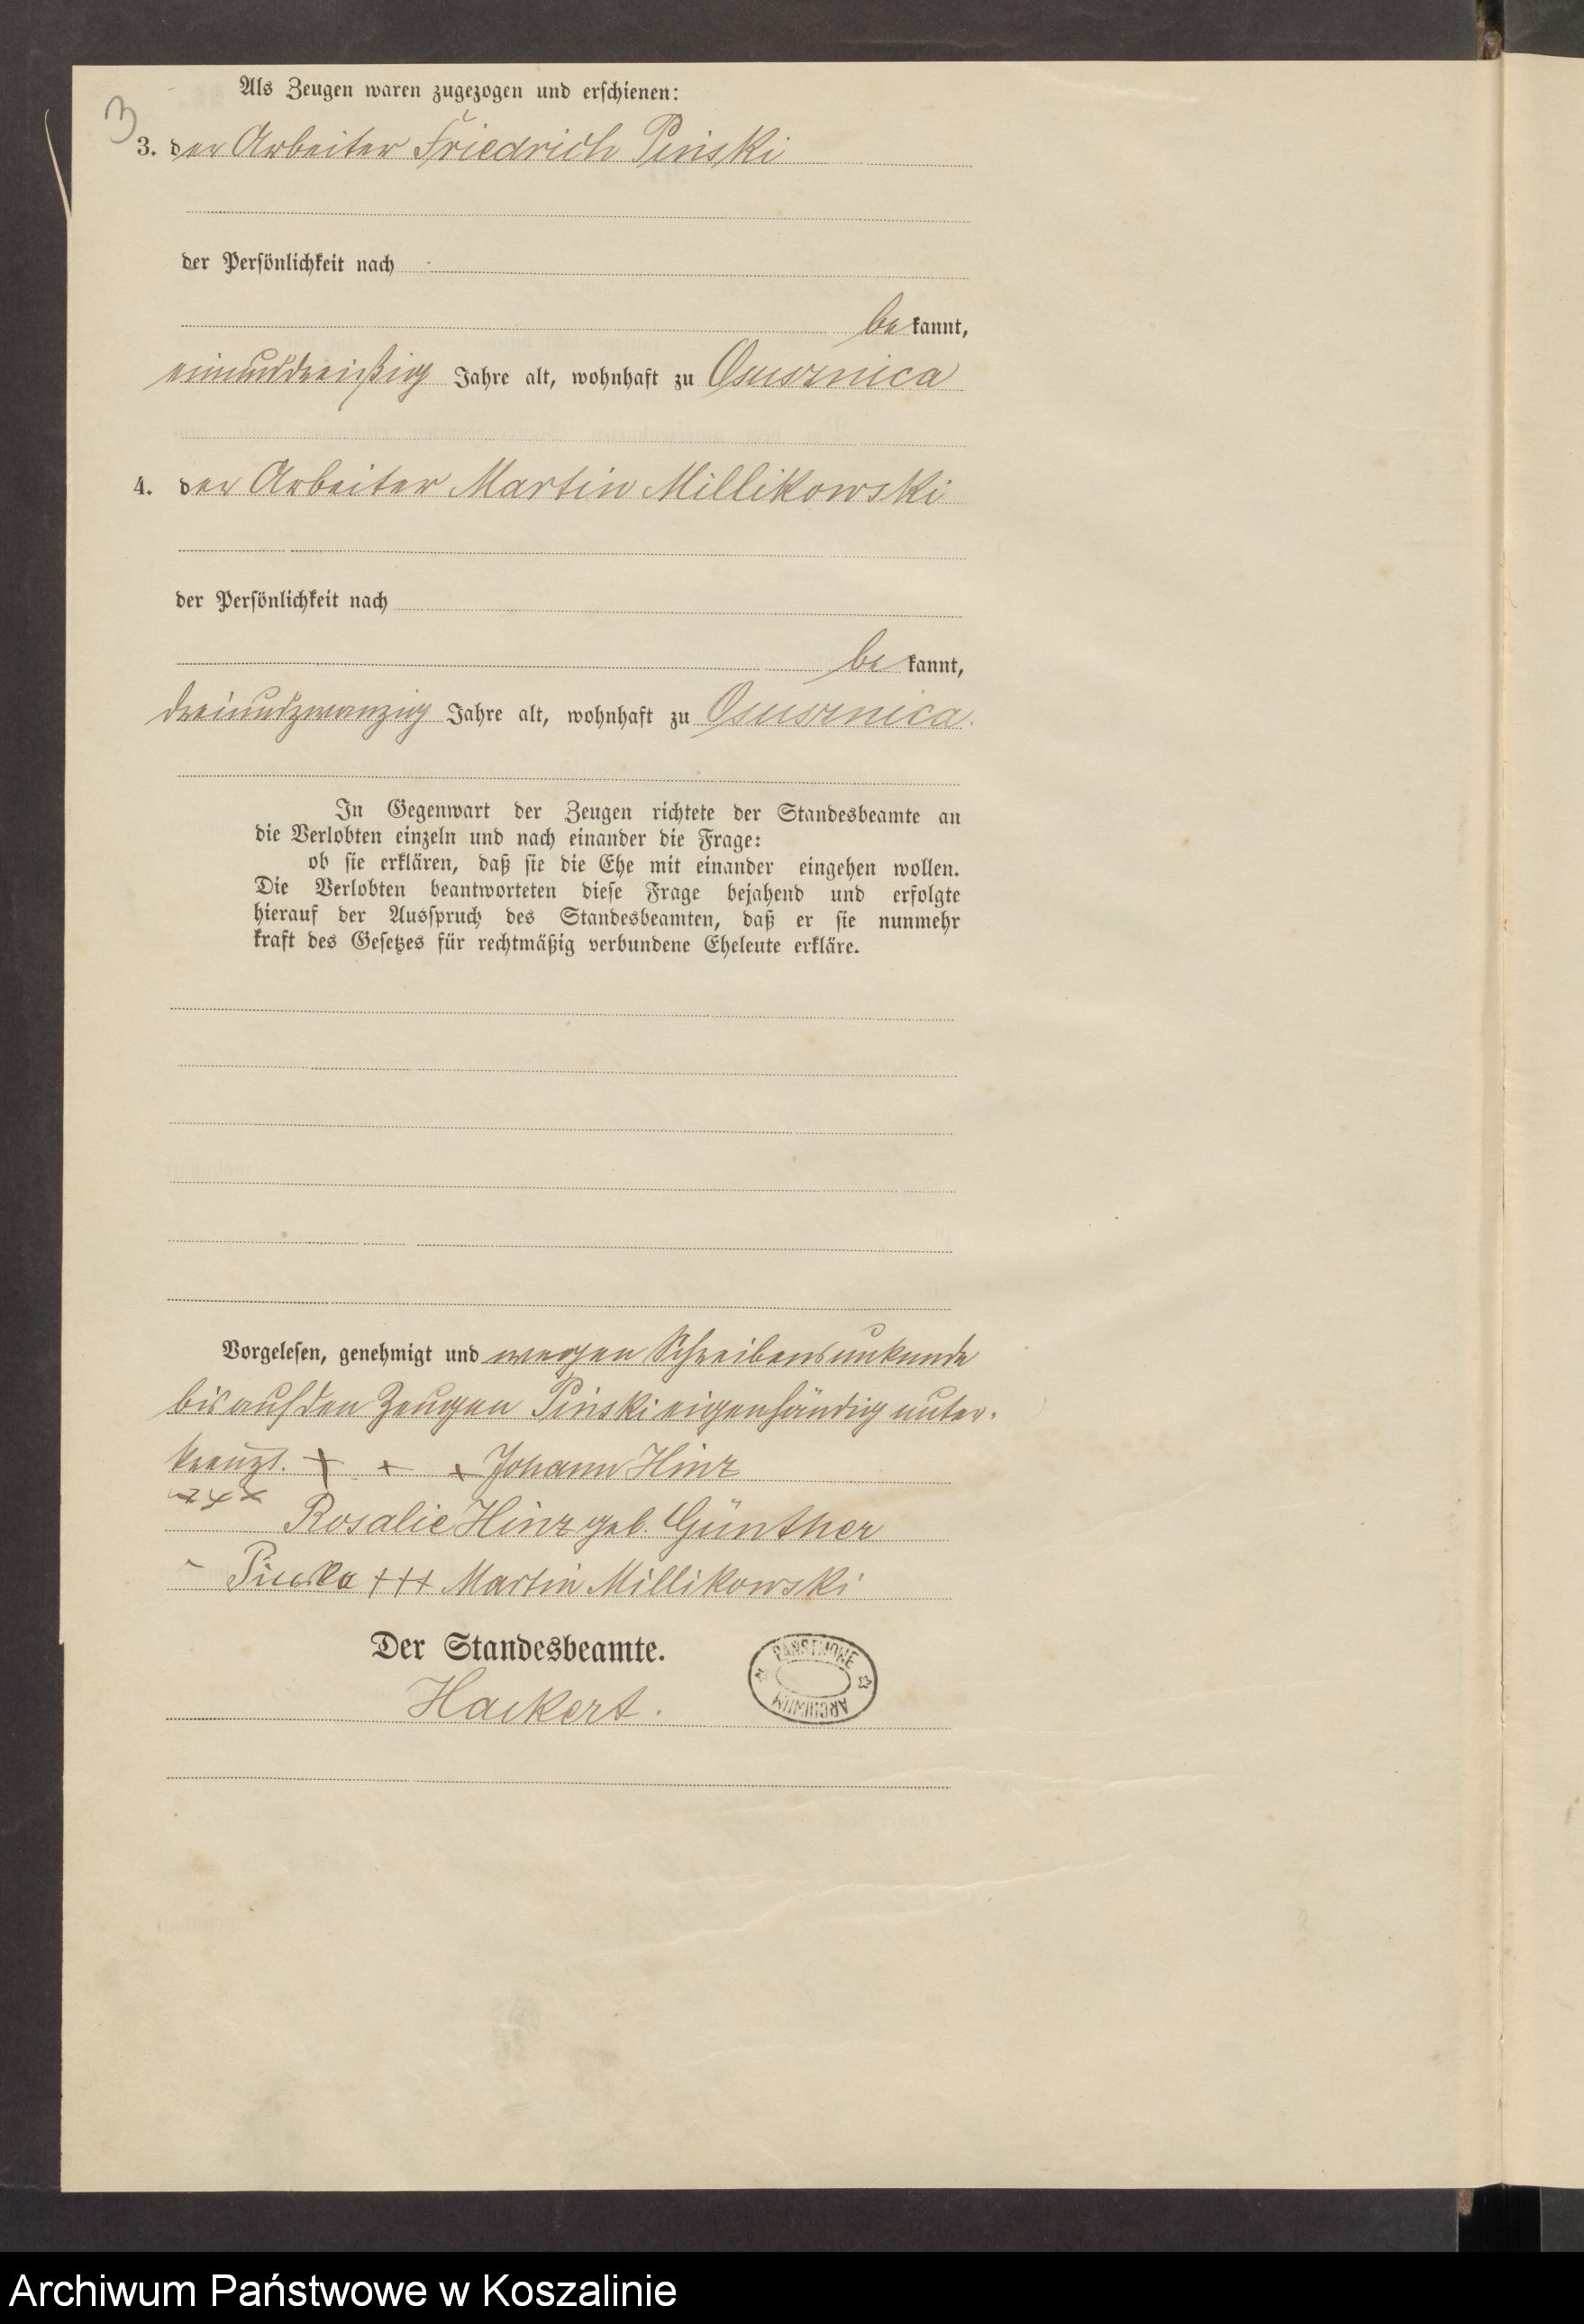 Als Zeugen waren zugezogen und erschienen:
3
3. der Arbeiter Friedrich Pinski
der Persönlichkeit nach
bekannt,
einunddreißig Jahre alt, wohnhaft zu Osusznica
4. der Arbeiter Martin Millikowski
der Persönlichkeit nach
bekannt,
dreiundzwanzig Jahre alt, wohnhaft zu Osusznica.
In Gegenwart der Zeugen richtete der Standesbeamte an
die Verlobten einzeln und nach einander die Frage:
ob sie erklären, daß sie die Ehe mit einander eingehen wollen.
Die Verlobten beantworteten diese Frage bejahend und erfolgte
hierauf der Ausspruch des Standesbeamten, daß er sie nunmehr
kraft des Gesetzes für rechtmäßig verbundene Eheleute erkläre.
Vorgelesen, genehmigt und wegen Schreibensunkunde
bis auf den Zeugen Pinski eigenhändig unter-
kreuzt. + + + Johann Hinz
+ + + Rosalie Hinz geb. Günther
+++ Martin Millikowski
Der Standesbeamte.
PAŃSTWOWE
ARCHIWUM
Hackert.
Archiwum Państwowe w Koszalinie